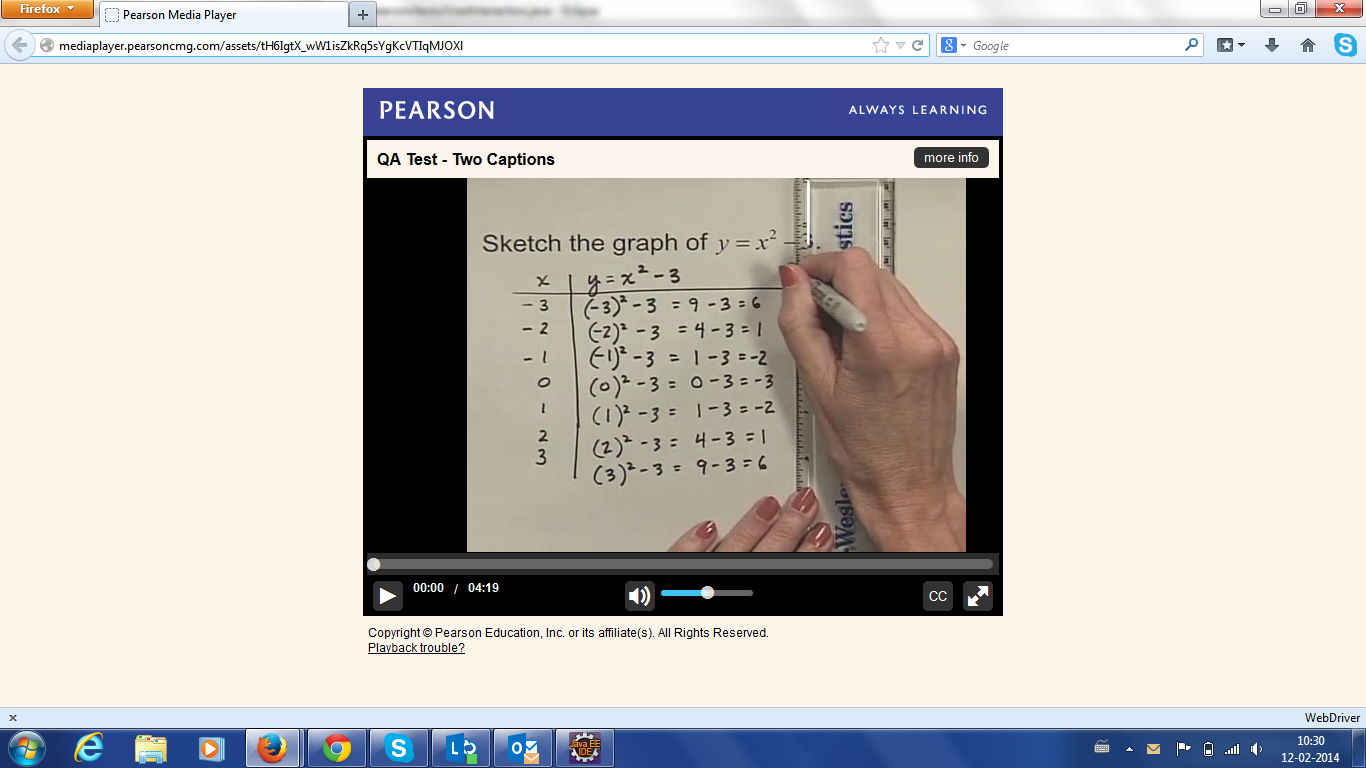 Firefox
Pearson Media Player
mediaplayer.pearsoncmg.com/assets/tH6IgtX_wW1isZkRq5sYgKcVTIqMJOXI
Google
PEARSON
ALWAYS LEARNING
QA Test - Two Captions
more info
Sketch the graph of y = x² - 3.
x y = x² - 3
-3 (-3)² - 3 = 9 - 3 = 6
-2 (-2)² - 3 = 4 - 3 = 1
-1 (-1)² - 3 = 1 - 3 = -2
0 (0)² - 3 = 0 - 3 = -3
1 (1)² - 3 = 1 - 3 = -2
2 (2)² - 3 = 4 - 3 = 1
3 (3)² - 3 = 9 - 3 = 6
00:00 / 04:19
CC
Copyright © Pearson Education, Inc. or its affiliate(s). All Rights Reserved.
Playback trouble?
x WebDriver
Java EE
IDE
10:30
12-02-2014